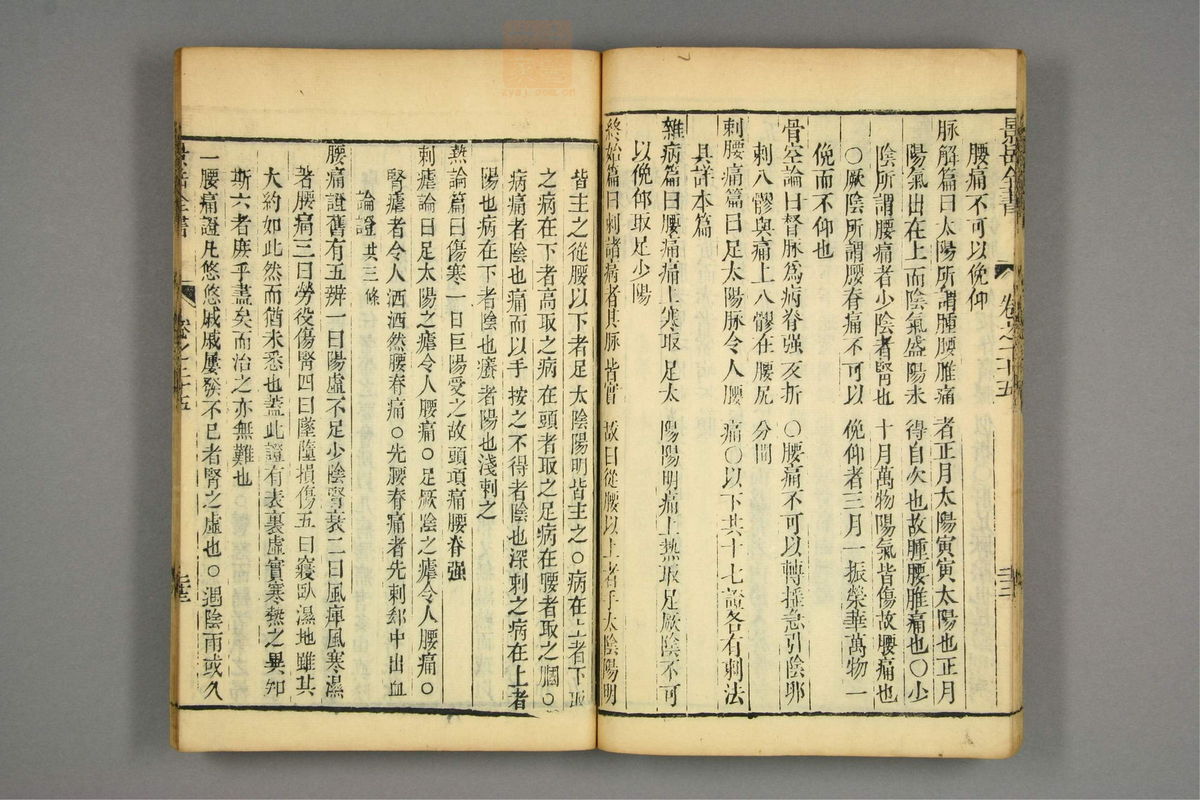 景岳全書 卷之二十五
腰痛不可以俛仰
脉解篇曰太陽所謂腫腰脽痛者正月太陽寅寅太陽也正月
陽氣出在上而陰氣盛陽未得自次也故腫腰脽痛也○少
陰所謂腰痛者少陰者腎也十月萬物陽氣皆傷故腰痛也
○厥陰所謂腰脊痛不可以俛仰者三月一振榮華萬物一
俛而不仰也
骨空論曰督脉爲病脊强反折○腰痛不可以轉揺急引陰卵
刺八髎與痛上八髎在腰尻分間
刺腰痛篇曰足太陽脉令人腰痛○以下共十七證各有刺法
具詳本篇
雜病篇曰腰痛痛上寒取足太陽陽明痛上熱取足厥陰不可
以俛仰取足少陽
終始篇曰刺諸痛者其脉皆實故曰從腰以上者手太陰陽明
皆主之從腰以下者足太陰陽明皆主之○病在上者下取
之病在下者高取之病在頭者取之足病在腰者取之膕○
病痛者陰也痛而以手按之不得者陰也深刺之病在上者
陽也病在下者陰也癢者陽也淺刺之
熱論篇曰傷寒一日巨陽受之故頭項痛腰脊强
刺瘧論曰足太陽之瘧令人腰痛○足厥陰之瘧令人腰痛○
腎瘧者令人洒洒然腰脊痛○先腰脊痛者先刺郄中出血
論證 共三條
腰痛證舊有五辨一曰陽虛不足少陰腎衰二曰風痺風寒濕
著腰痛三曰勞役傷腎四曰墜墮損傷五曰寢臥濕地雖其
大約如此然而猶未悉也葢此證有表裏虛實寒熱之異知
斯六者庻乎盡矣而治之亦無難也
一腰痛證凡悠悠戚戚屢發不已者腎之虛也○遇陰雨或久
景岳全書 卷之二十五